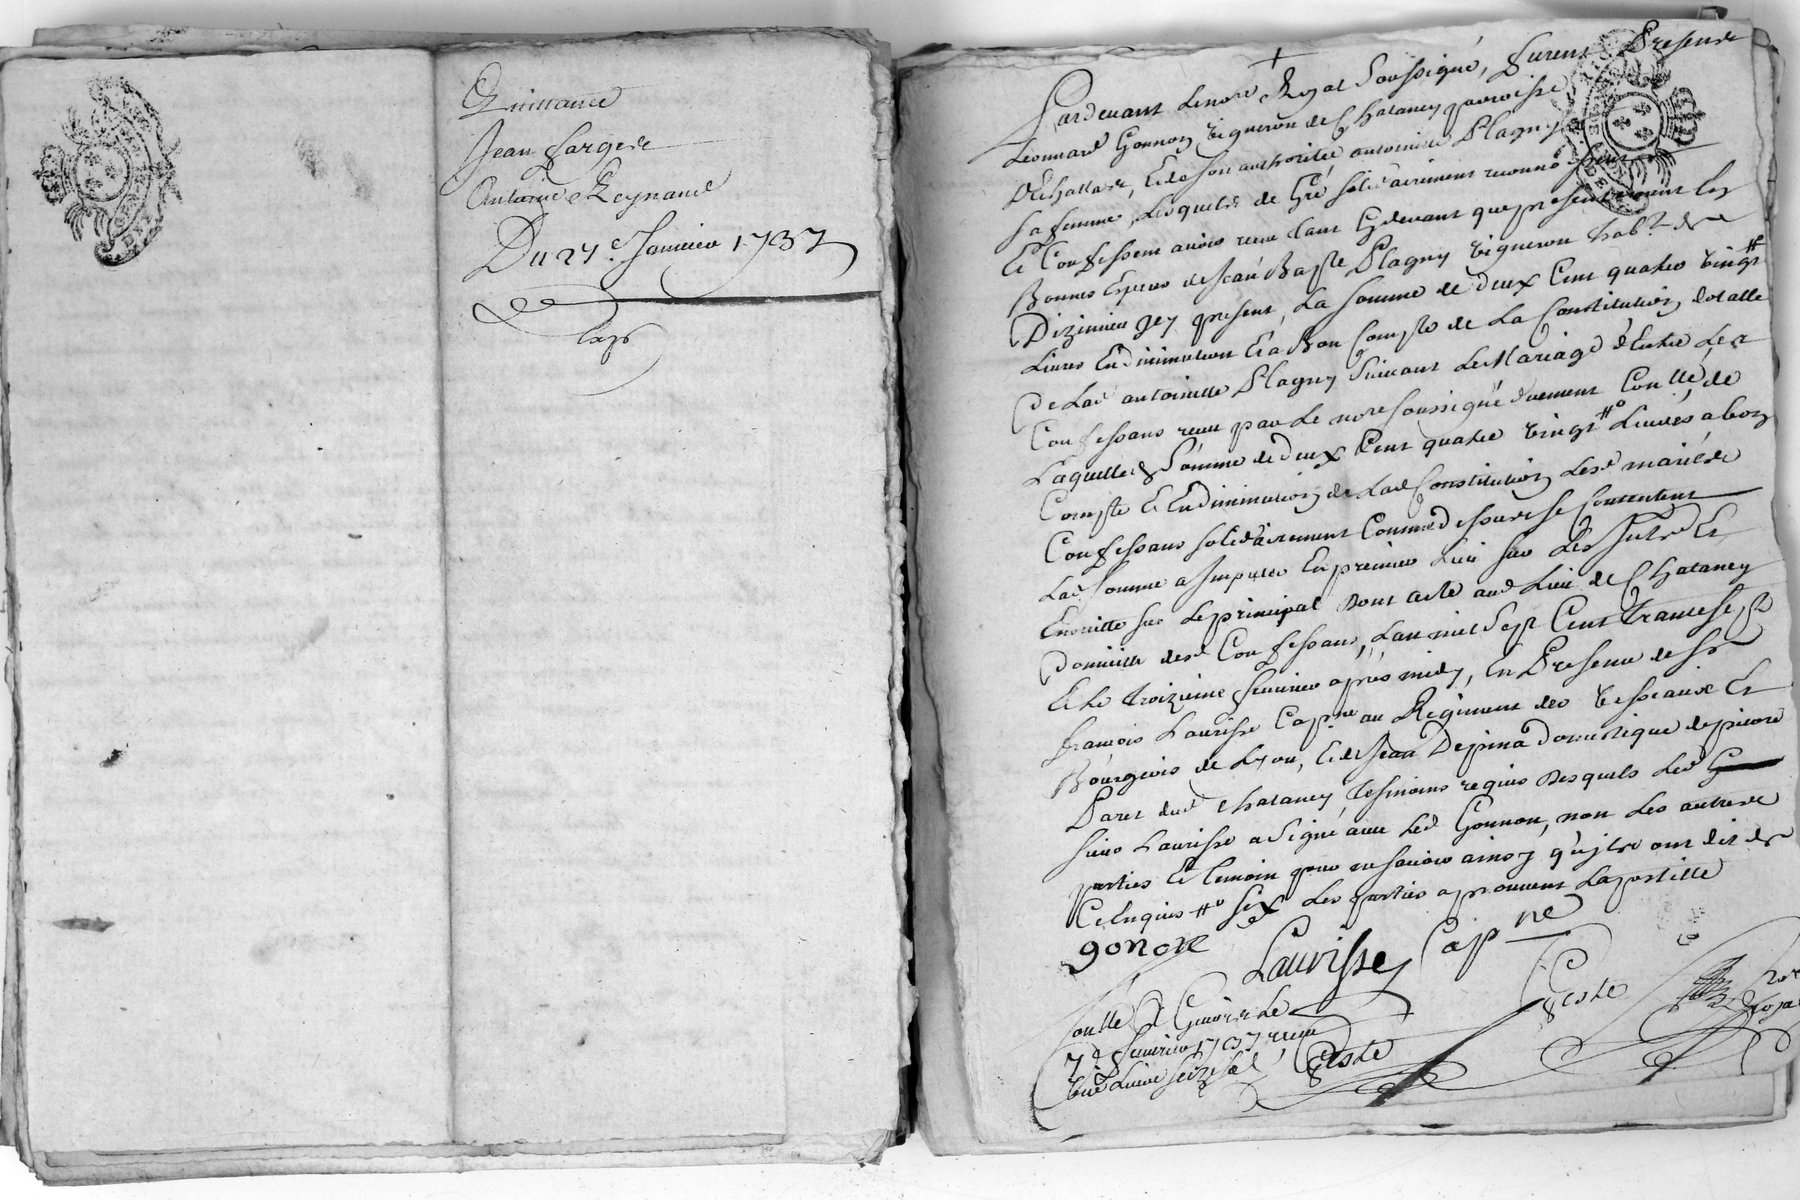 Quittance
Jean fargere
Antoine Reynaud
Du 27e. Janvier 1737
Pardevant Le nore Royal Soussigné, furent Presents
Leonnard Gonnon vigneron de Chataney paroisse
De Challare, Et de son authoritée antoinette Plagny
Sa femme, Lesquels de Gré solidairement reconnoissent
Et Confessent avoir reçu tant Cydevant que presentement En
Bonnes Especes de Jean Bapte Plagny vigneron habt. de
Dizimieu Jcy present, La somme de deux Cent quatre vingt
Livres En diminution Et a Bon Compte de La Constitution dotalle
De Lad antoinette Plagny suivant Le Mariage d'Entre Les
Confessans reçu par Le nore soussigné duement Conllé, de
Laquelle Somme de deux Cent quatre vingt Livres a bon
Compte Et En diminution de Lad Constitution Lesd mariés
Confessans solidairement Comme dessus se Contentent
Lad Somme a Imputer En premier Lieu sur Les
Ensuitte sur Le principal Dont acte aud Lieu de Chataney
Domicille desd Confessans, L'an mil Sept Cent Trente Sept
Et Le Troizieme fevrier après midy, En Presence de Sr
françois Laurisse Capne au Regiment de Et
Bourgeois de Lyon, Et de Jean Depina Domestique de pierre
Paret dud Chataney, Tesmoins requis Desquels Led
sieur Laurisse a Signé avec Led Gonnon, non Les autres
parties Et temoin pour ne sçavoir ainsy qu'ils ont dit de
Ce Enquis six Les parties approuvent L'apostille
gonon Laurisse Capne
Coste nore Royal
Conllé A Cremieu Le
7e fevrier 1737 reçu
Livre seize sol Coste